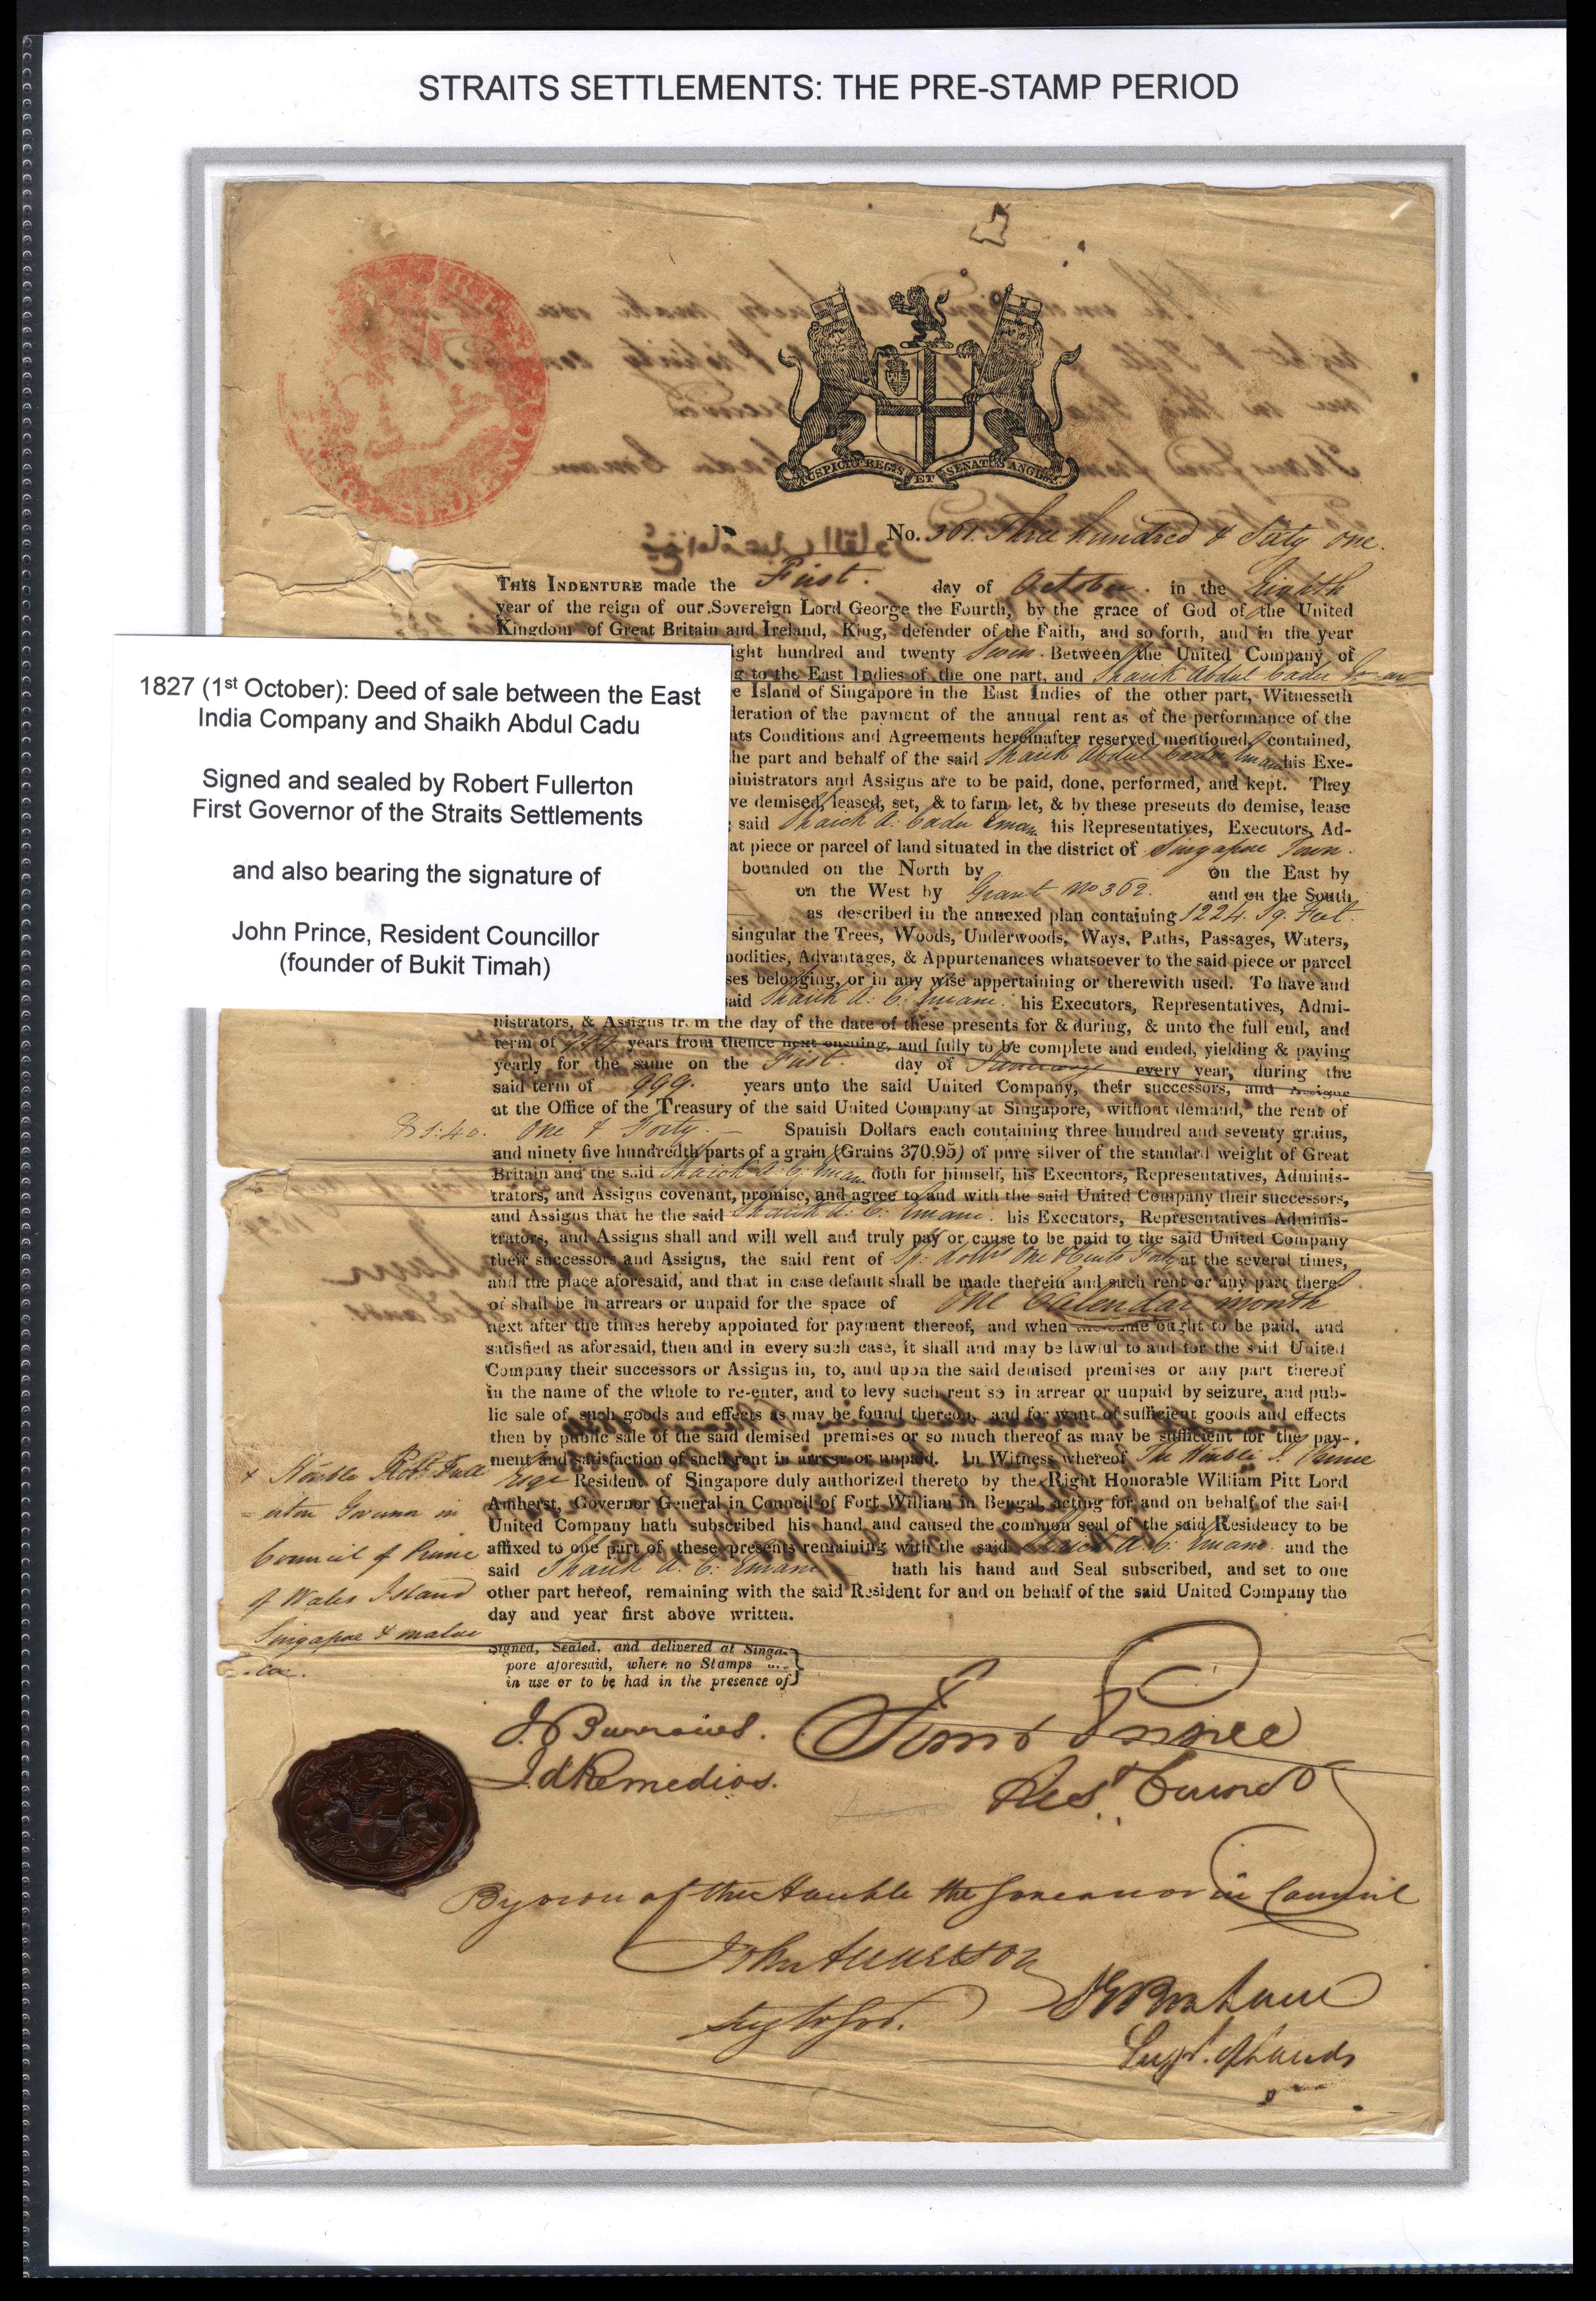 STRAITS SETTLEMENTS: THE PRE-STAMP PERIOD
AUSPICIO REGIS ET SENATUS ANGLIÆ
No. 361. Three hundred & Sixty One.
THIS INDENTURE made the First. day of October. in the Eighth
year of the reign of our Sovereign Lord George the Fourth, by the grace of God of the United
Kingdom of Great Britain and Ireland, King, defender of the Faith, and so forth, and in the year
ight hundred and twenty Seven. Between the United Company of
g to the East Indies of the one part, and Shaik Abdul Cadu
e Island of Singapore in the East Indies of the other part, Witnesseth
leration of the payment of the annual rent as of the performance of the
nts Conditions and Agreements hereinafter reserved, mentioned, contained,
he part and behalf of the said Shaik Abdul Cadu Emam his Exe-
ninistrators and Assigns are to be paid, done, performed, and kept. They
ve demised, leased, set, & to farm let, & by these presents do demise, lease
said Shaick A. Cadu Emam his Representatives, Executors, Ad-
at piece or parcel of land situated in the district of Singapore Town.
bounded on the North by on the East by
on the West by Grant No 362. and on the South
as described in the annexed plan containing 1224. Sq. Feet.
singular the Trees, Woods, Underwoods, Ways, Paths, Passages, Waters,
nodities, Advantages, & Appurtenances whatsoever to the said piece or parcel
ses belonging, or in any wise appertaining or therewith used. To have and
said Shaik A: C: Emam. his Executors, Representatives, Admi-
nistrators, & Assigns from the day of the date of these presents for & during, & unto the full end, and
term of 999 years from thence next ensuing, and fully to be complete and ended, yielding & paying
yearly for the same on the First. day of every year, during the
said term of 999. years unto the said United Company, their successors, and Assigns
at the Office of the Treasury of the said United Company at Singapore, without demand, the rent of
$1:40. One & Forty. Spanish Dollars each containing three hundred and seventy grains,
and ninety five hundredth parts of a grain (Grains 370.95) of pure silver of the standard weight of Great
Britain and the said Shaick A: C: Emam doth for himself, his Executors, Representatives, Adminis-
trators, and Assigns covenant, promise, and agree to and with the said United Company their successors,
and Assigns that he the said Shaick A: C: Emam. his Executors, Representatives Adminis-
trators, and Assigns shall and will well and truly pay or cause to be paid to the said United Company
their successors and Assigns, the said rent of Sp: dollrs One & Cents Forty at the several times,
and the place aforesaid, and that in case default shall be made therein and such rent or any part there-
of shall be in arrears or unpaid for the space of One Calendar month
next after the times hereby appointed for payment thereof, and when the same ought to be paid, and
satisfied as aforesaid, then and in every such case, it shall and may be lawful to and for the said United
Company their successors or Assigns in, to, and upon the said demised premises or any part thereof
in the name of the whole to re-enter, and to levy such rent so in arrear or unpaid by seizure, and pub-
lic sale of such goods and effects as may be found thereon, and for want of sufficient goods and effects
then by public sale of the said demised premises or so much thereof as may be sufficient for the pay-
ment and satisfaction of such rent in arrear or unpaid. In Witness whereof The Honble J. Prince
Esqr Resident of Singapore duly authorized thereto by the Right Honorable William Pitt Lord
Amherst, Governor General in Council of Fort William in Bengal, acting for and on behalf of the said
United Company hath subscribed his hand and caused the common seal of the said Residency to be
affixed to one part of these presents remaining with the said Shaick A: C: Emam. and the
said Shaik A: C: Emam hath his hand and Seal subscribed, and set to one
other part hereof, remaining with the said Resident for and on behalf of the said United Company the
day and year first above written.
x Honble Robt Full
=erton Governor in
Council of Prince
of Wales Island
Singapore & Malac
=ca.
Signed, Sealed, and delivered at Singa-
pore aforesaid, where no Stamps are
in use or to be had in the presence of
J. Burrows.
J. d'Remedios.
John Prince
Rest Councr
By order of the Honble the Governor in Council
John Anderson
Secy to Govt.
Supt. of Lands
1827 (1st October): Deed of sale between the East
India Company and Shaikh Abdul Cadu
Signed and sealed by Robert Fullerton
First Governor of the Straits Settlements
and also bearing the signature of
John Prince, Resident Councillor
(founder of Bukit Timah)